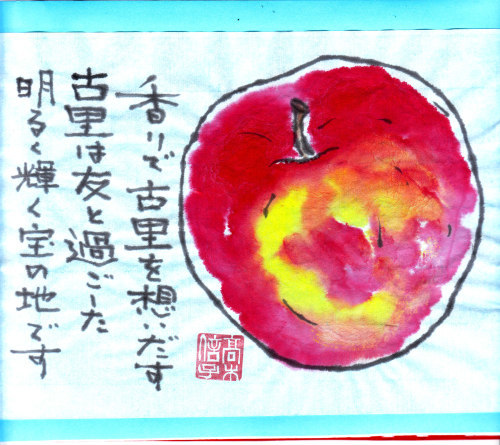 香りで古里を想いだす
古里は友と過ごした
明るく輝く宝の地です
高木
信子